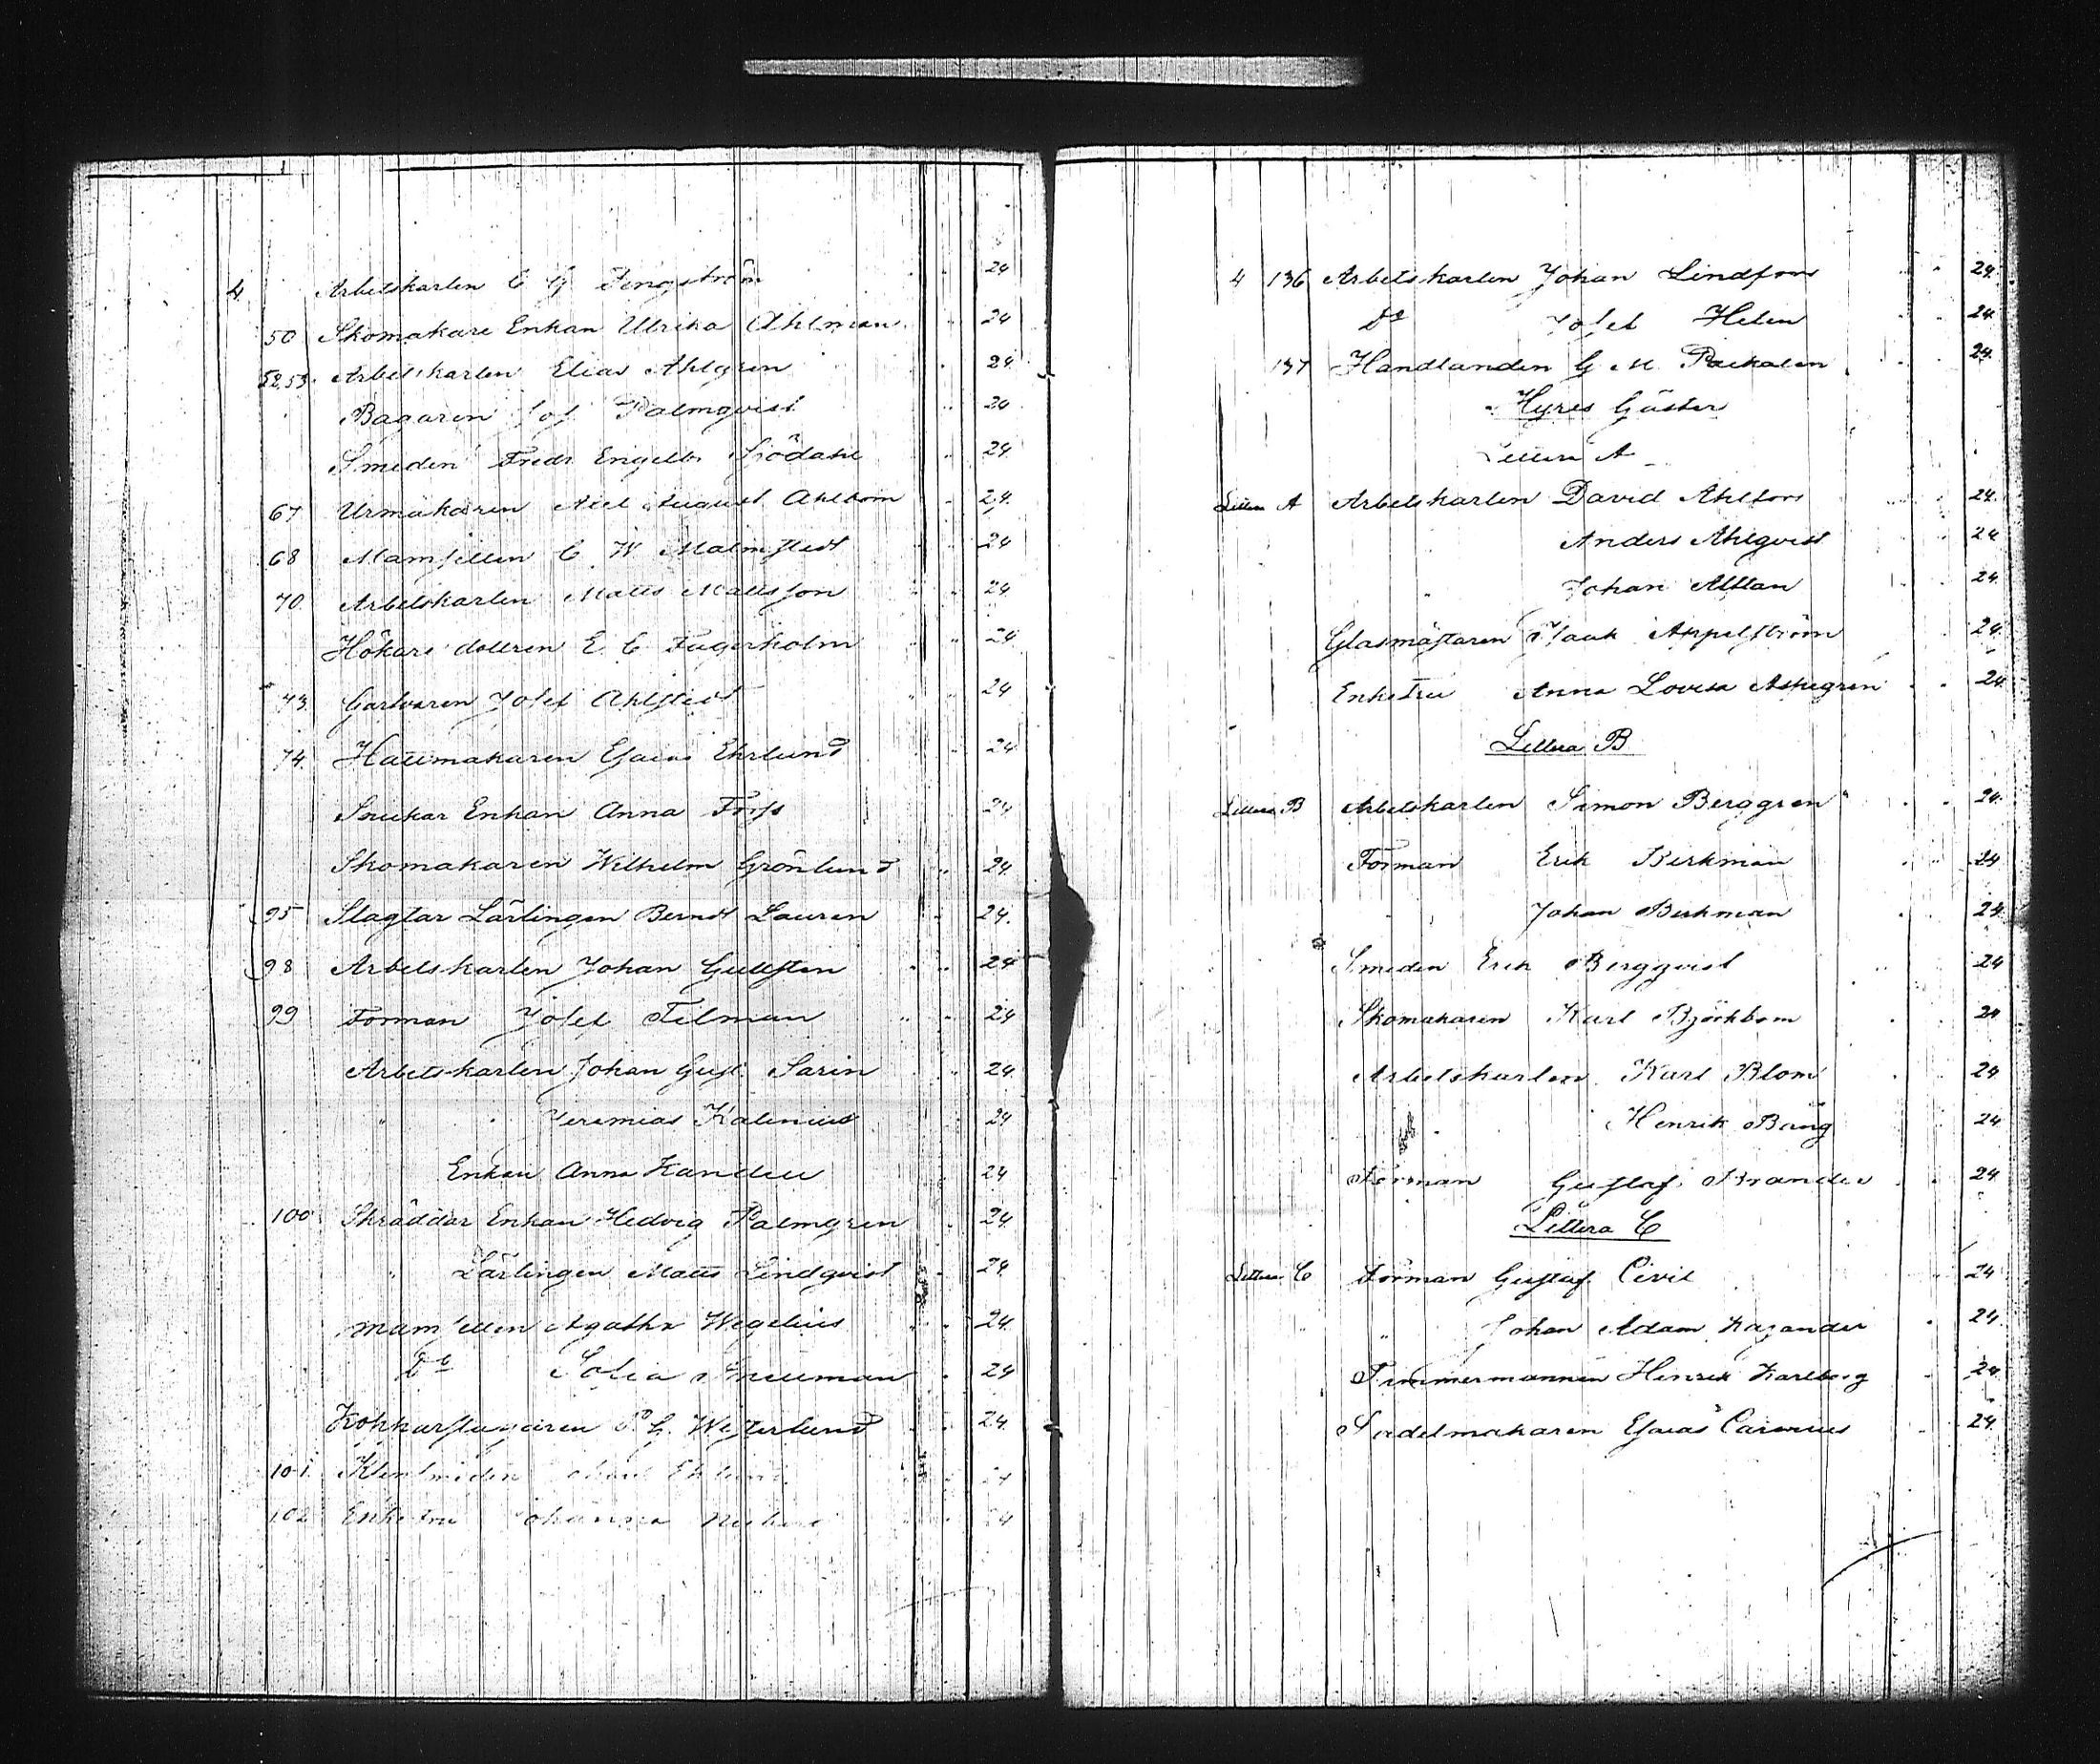 4. Arbetskarlen C G Fengström 24
50 Skomakare Enkan Ulrika Ahlman 24
52,53. Arbetskarlen Elias Ahlgren 24
Bagaren Jos. Palmqvist 24
Smeden Fredr Engelb. Siödahl 24
67 Urmakaren Axel August Ahlbom 24.
68 Mamsellen C W Malmstedt 24
70. Arbetskarlen Matts Mattsson 24
Hökare dottren E. C Fagerholm 24
73. Garfvaren Josef Ahlstedt 24
74. Hattmakaren Esaias Ehrlund 24
Snickar Enkan Anna Forss 24
Skomakaren Wilhelm Grönlund 24.
95 Slagtar Lärlingen Berndt Lauren 24.
98 Arbetskarlen Johan Gullsten 24
99 Forman Josef Tilman 24
Arbetskarlen Johan Gust. Sarin 24.
" Jeremias Kalenius 24
Enkan Anna 24
100 Skräddar Enkan Hedvig Palmgren 24
" Lärlingen Matts Lindqvist 24.
Mamsellen Agatha Wegelius 24.
Do Sofia 24
Kopparslagaren P. G. Westerlund 24.
101. Klensmeden 24
102 Enkefru Johanna 24
4 136 Arbetskarlen Johan Lindfors 24.
Do Josef Helen 24.
137 Handlanden G M. 24.
Hyres Gäster
Littera A
Littera A Arbetskarlen David Ahlfors 24.
Anders Ahlqvist 24
" Johan Alttan 24.
Glasmästaren Isaak Appelström 24.
Enkefru Anna Lovisa Aspegren 24.
Littera B
Littera B Arbetskarlen Simon Berggren 24.
Forman Erik Birkman 24
Johan Birkman 24.
Smeden Erik Bergqvist 24
Skomakaren Karl Björkbom 24
Arbetskarlen Karl Blom 24
Henrik Bäng 24
Forman Gustaf Brander 24
Littera C
Littera C Forman Gustaf Civil 24
" Johan Adam Kazander 24.
Timmermannen Henrik Karlberg 24.
Sadelmakaren Esaias Carenius 24.